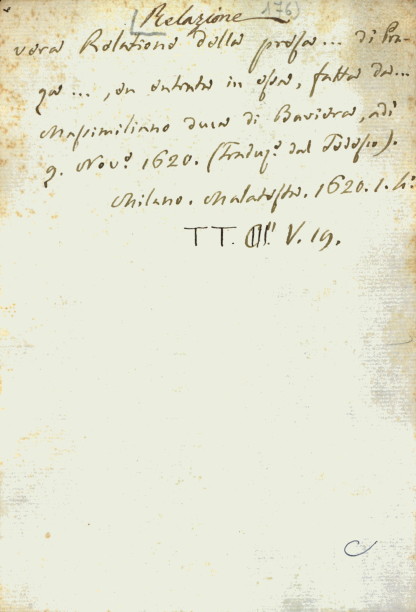 Relazione 176)
vera Relatione della presa ... di Pra-
ga ..., en entrata in essa, fatta da ...
Massimiliano duca di Baviera, adi
9. Nov.e 1620. (Traduz.e dal Tedesco).
Milano. Malatesta. 1620. 1. 4.o
TT. V. 19.